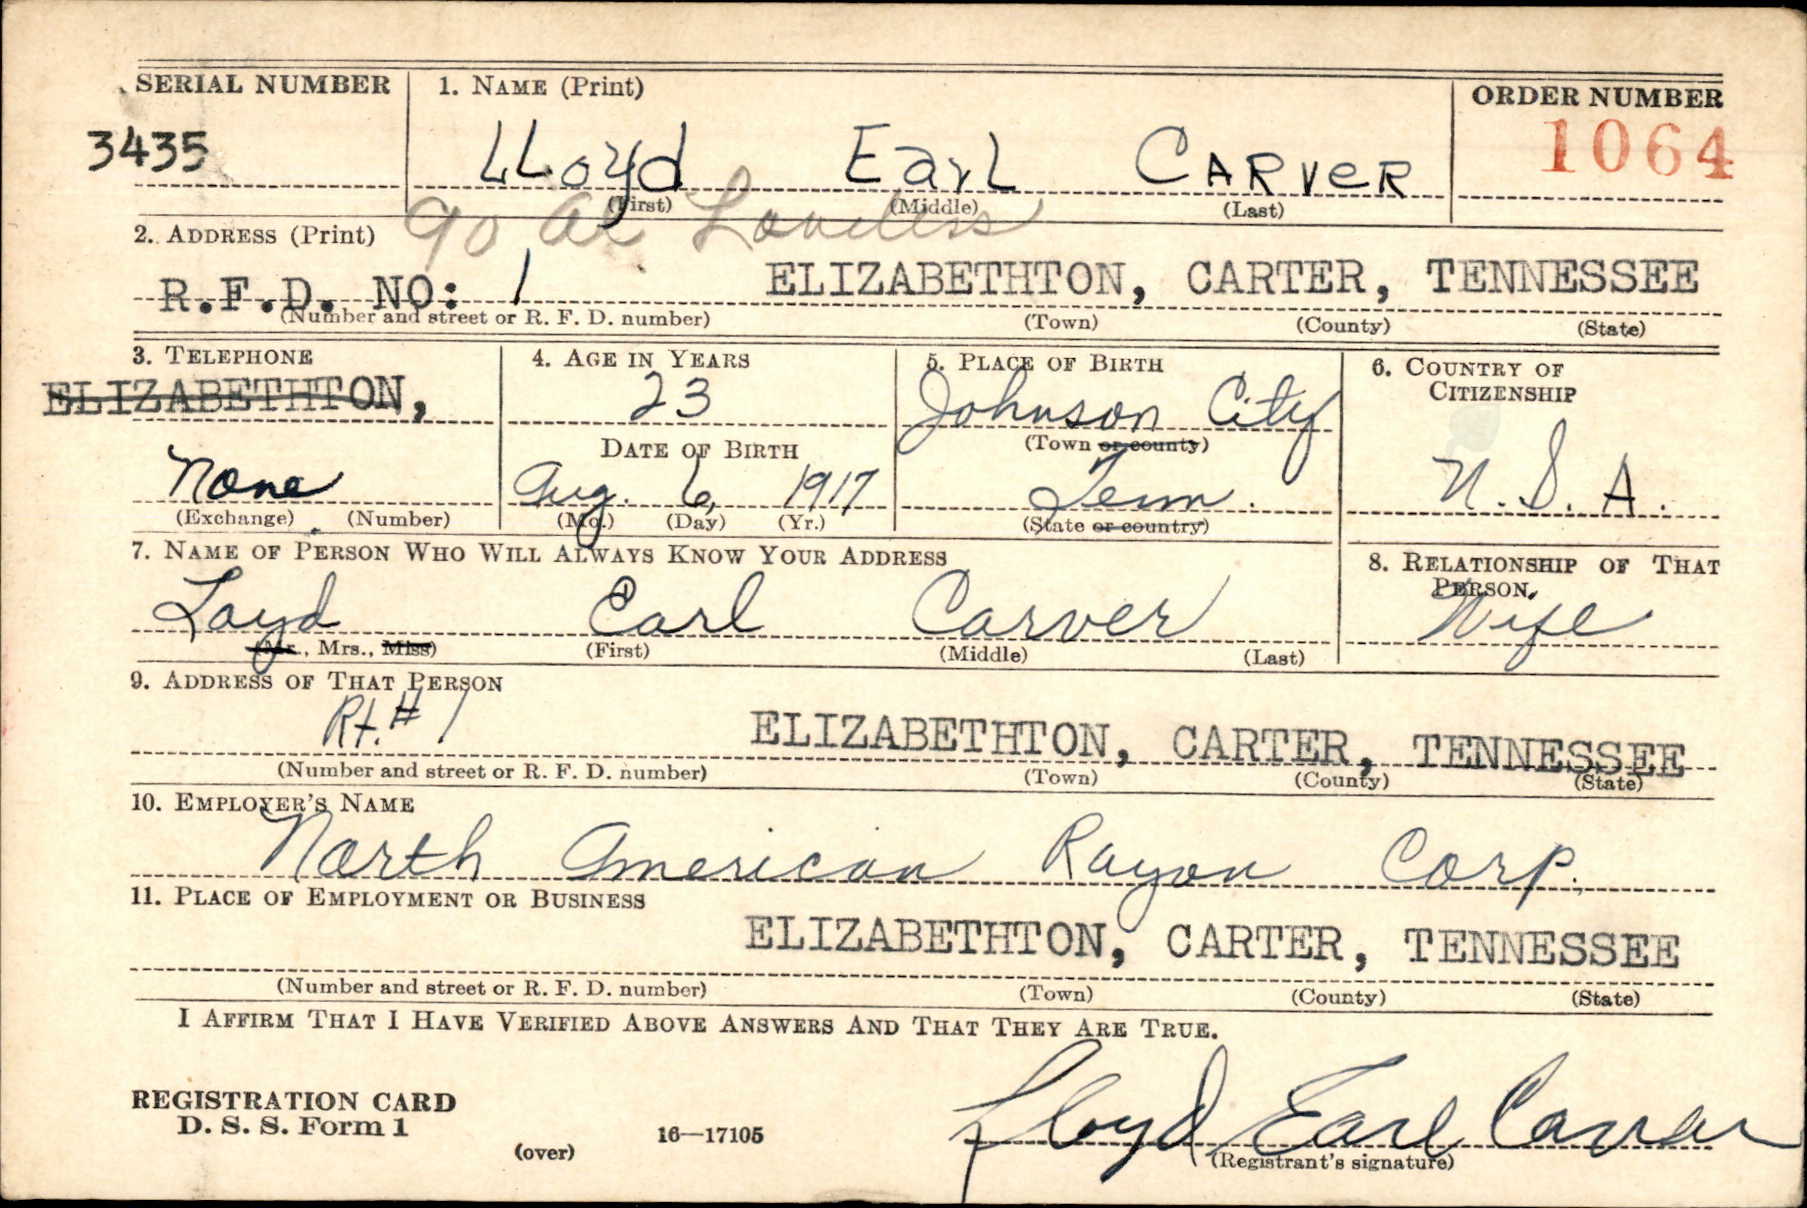 SERIAL NUMBER 1. NAME (Print) ORDER NUMBER
3435 LLoyd Earl CARVER 1064
(First) (Middle) (Last)
2. ADDRESS (Print)
R.F.D. NO: 1 ELIZABETHTON, CARTER, TENNESSEE
(Number and street or R. F. D. number) (Town) (County) (State)
3. TELEPHONE 4. AGE IN YEARS 5. PLACE OF BIRTH 6. COUNTRY OF CITIZENSHIP
ELIZABETHTON, 23 Johnson City
DATE OF BIRTH (Town or county)
None Aug. 6, 1917 Tenn. U. S. A.
(Exchange) (Number) (Mo.) (Day) (Yr.) (State or country)
7. NAME OF PERSON WHO WILL ALWAYS KNOW YOUR ADDRESS 8. RELATIONSHIP OF THAT PERSON
Loyd Earl Carver Wife
(Mr., Mrs., Miss) (First) (Middle) (Last)
9. ADDRESS OF THAT PERSON
Rt. # 1 ELIZABETHTON, CARTER, TENNESSEE
(Number and street or R. F. D. number) (Town) (County) (State)
10. EMPLOYER'S NAME
North American Rayon Corp.
11. PLACE OF EMPLOYMENT OR BUSINESS
ELIZABETHTON, CARTER, TENNESSEE
(Number and street or R. F. D. number) (Town) (County) (State)
I AFFIRM THAT I HAVE VERIFIED ABOVE ANSWERS AND THAT THEY ARE TRUE.
REGISTRATION CARD
D. S. S. Form 1
(over) 16—17105 Lloyd Earl Carver
(Registrant's signature)